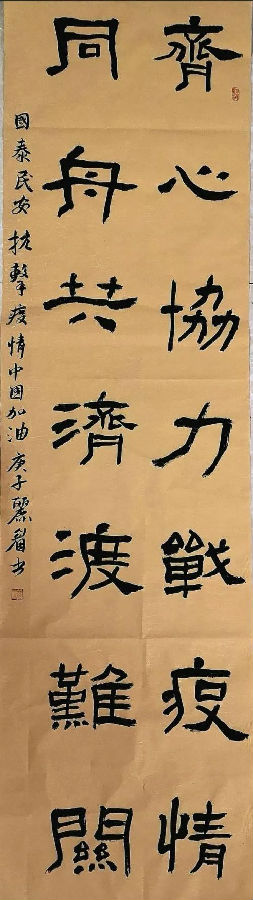 齊心協力戰疫情
同舟共濟渡難關
國泰民安抗擊疫情中国加油庚子麗眉书